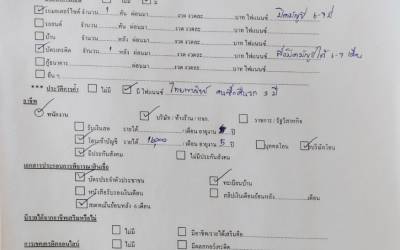 ไม่มี มี
รถมอเตอร์ไซค์ จำนวน 1 คัน ผ่อนมา งวด งวดละ บาท ไฟแนนซ์ ปิดบัญชี 6-7 ปี
รถยนต์ จำนวน คัน ผ่อนมา งวด งวดละ บาท ไฟแนนซ์
บ้าน จำนวน หลัง ผ่อนมา งวด งวดละ บาท ไฟแนนซ์
บัตรเครดิต จำนวน 1 ผ่อนมา งวด งวดละ บาท ไฟแนนซ์ 6-7 เดือน
กู้ธนาคาร ผ่อนมา งวด งวดละ บาท ไฟแนนซ์
อื่น ๆ
*** ประวัติการค้ำ ไม่มี มี ไฟแนนซ์ ไทยพาณิชย์ 3 ปี
อาชีพ
พนักงาน บริษัท / ห้างร้าน / หจก. ราชการ / รัฐวิสาหกิจ
รับเงินสด รายได้ /เดือน อายุงาน ปี
โอนเข้าบัญชี รายได้ 16000 /เดือน อายุงาน 5 ปี บุคคลโอน บริษัทโอน
มีประกันสังคม ไม่มีประกันสังคม
เอกสารประกอบการพิจารณาสินเชื่อ
บัตรประจำตัวประชาชน ทะเบียนบ้าน
หนังสือรับรองเงินเดือน สลิปเงินเดือนย้อนหลัง เดือน
สเตทเม้นย้อนหลัง 6 เดือน
มีรายได้จากอาชีพเสริมหรือไม่
ไม่มี มีอาชีพ/รายได้เสริมคือ
ไม่มี